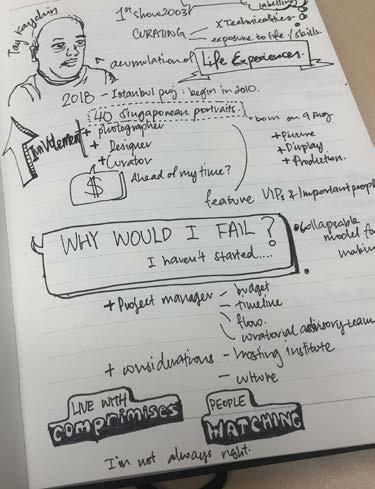 Tay Kay Chin
1st show 2003!
labelling
CURATING
x Technicalities
- exposure to life / skills.
accumulation of
Life Experiences.
2018 - Istanbul proj. begin in 2010.
40 Singaporean portraits
born on 9 Aug
Involvement
+ photographer
+ Designer
+ Curator
+ Picture
+ Display
+ Production.
$
Ahead of my time?
feature VIPs & Important people
WHY WOULD I FAIL?
I haven't started....
Collapsable
model for
making
+ Project manager
- budget
- timeline
- flow.
- curatorial advisory team
+ considerations
- hosting institute
- culture
LIVE WITH
COMPRIMISES
PEOPLE
WATCHING
I'm not always right.